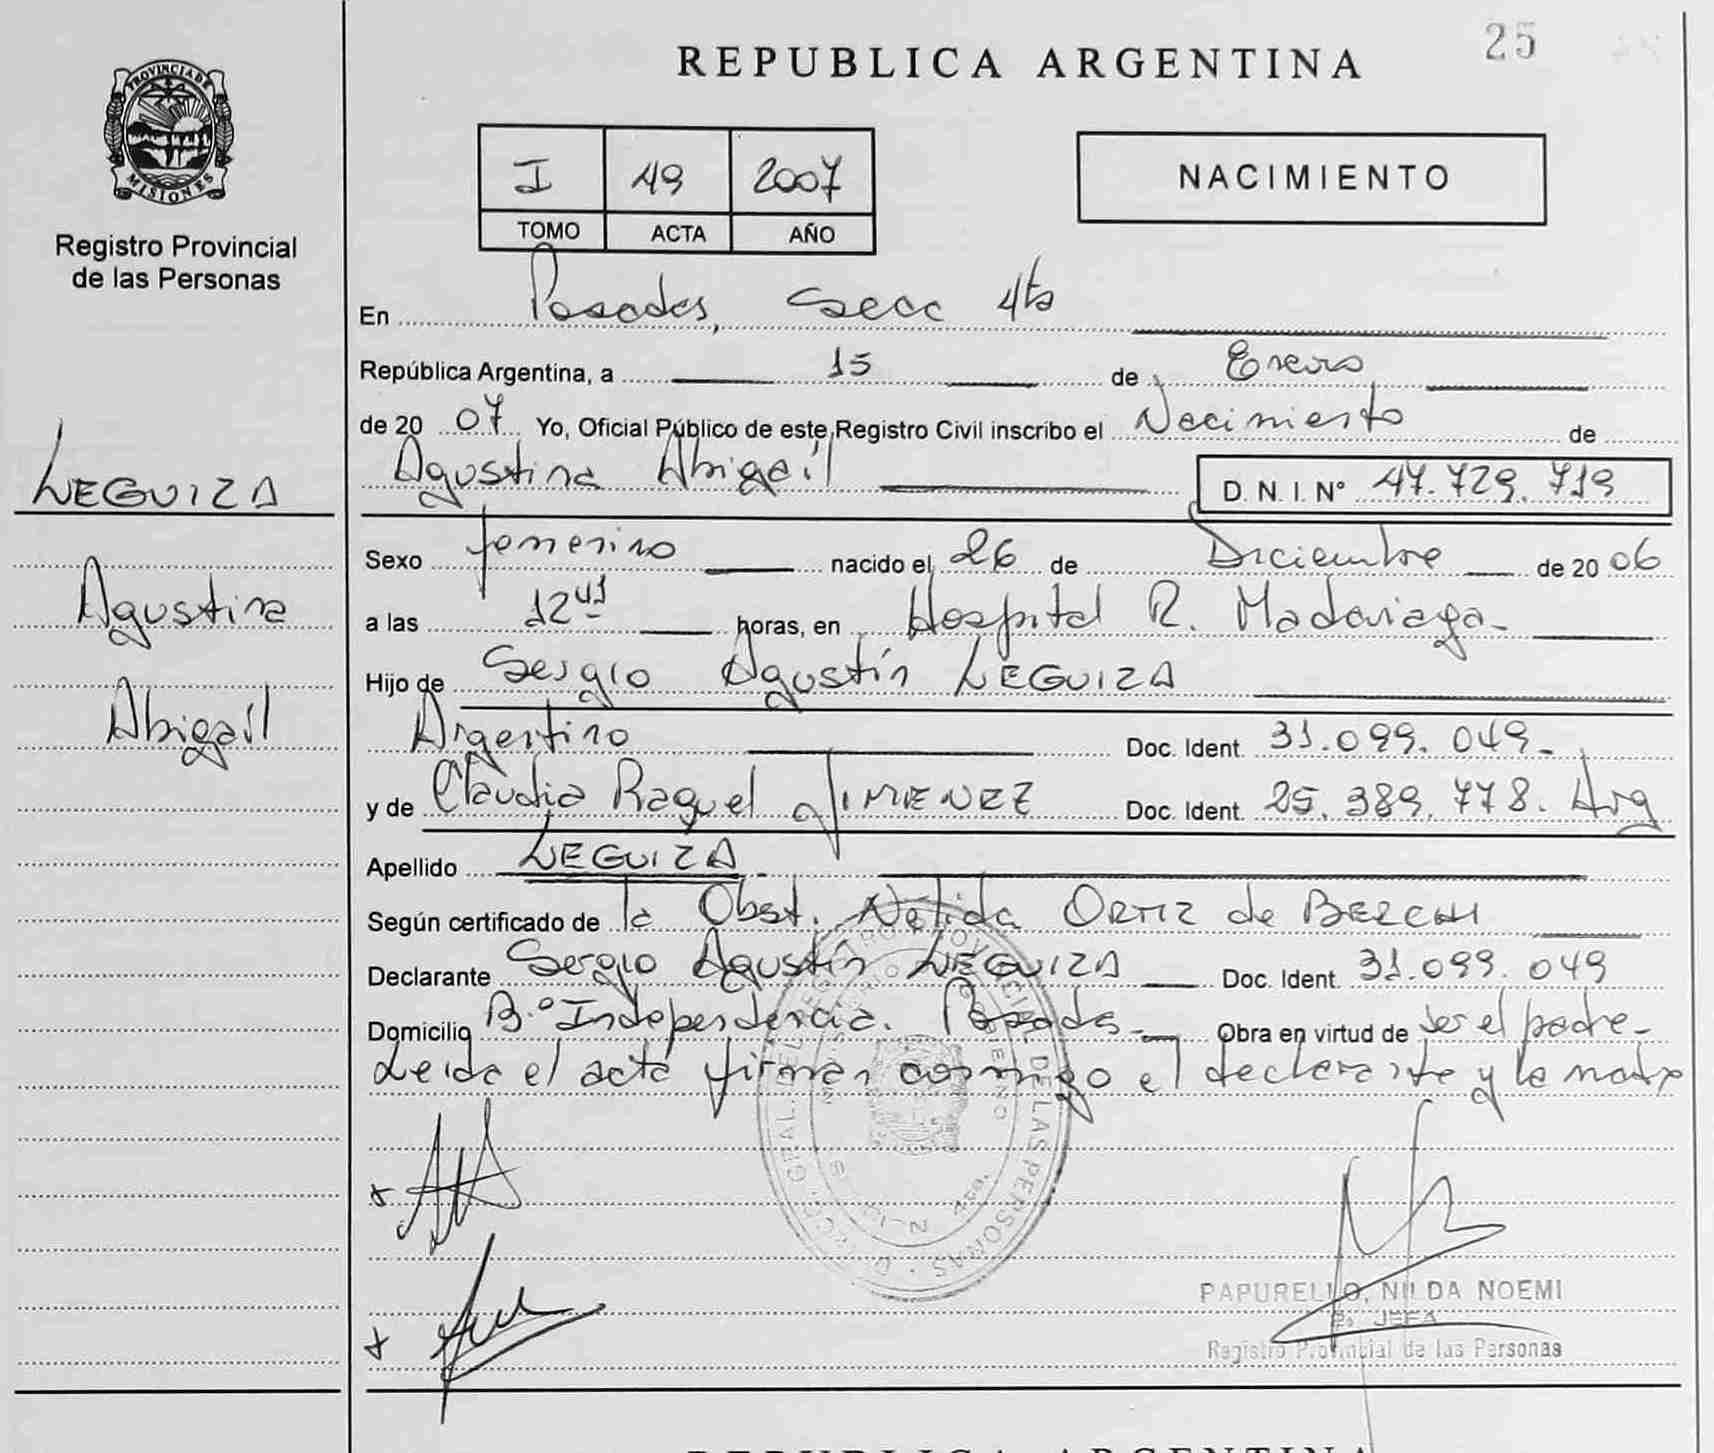 REPUBLICA ARGENTINA
25
PROVINCIA DE
MISIONES
Registro Provincial
de las Personas
I 49 2007
TOMO ACTA AÑO
NACIMIENTO
En Posadas, Secc 4ta
República Argentina, a 15 de Enero
de 20 07 Yo, Oficial Público de este Registro Civil inscribo el Nacimiento de
Agustina Abigail D. N. I. Nº 47.729.719
LEGUIZA
Agustina
Abigaíl
Sexo femenino nacido el 26 de Diciembre de 20 06
a las 12 41 horas, en Hospital R. Madariaga-
Hijo de Sergio Agustín LEGUIZA
Argentino Doc. Ident. 31.099.049-
y de Claudia Raquel JIMENEZ Doc. Ident. 25.389.778. Arg
Apellido LEGUIZA
Según certificado de la Obst. Nélida ORTIZ de BERCHI
Declarante Sergio Agustín LEGUIZA Doc. Ident. 31.099.049
Domicilio B.º Independencia. Posadas- Obra en virtud de ser el padre-
Leida el acta firman conmigo el declarante y la madre
PAPURELLO, NILDA NOEMI
JEFA
Registro Provincial de las Personas
REPUBLICA ARGENTINA